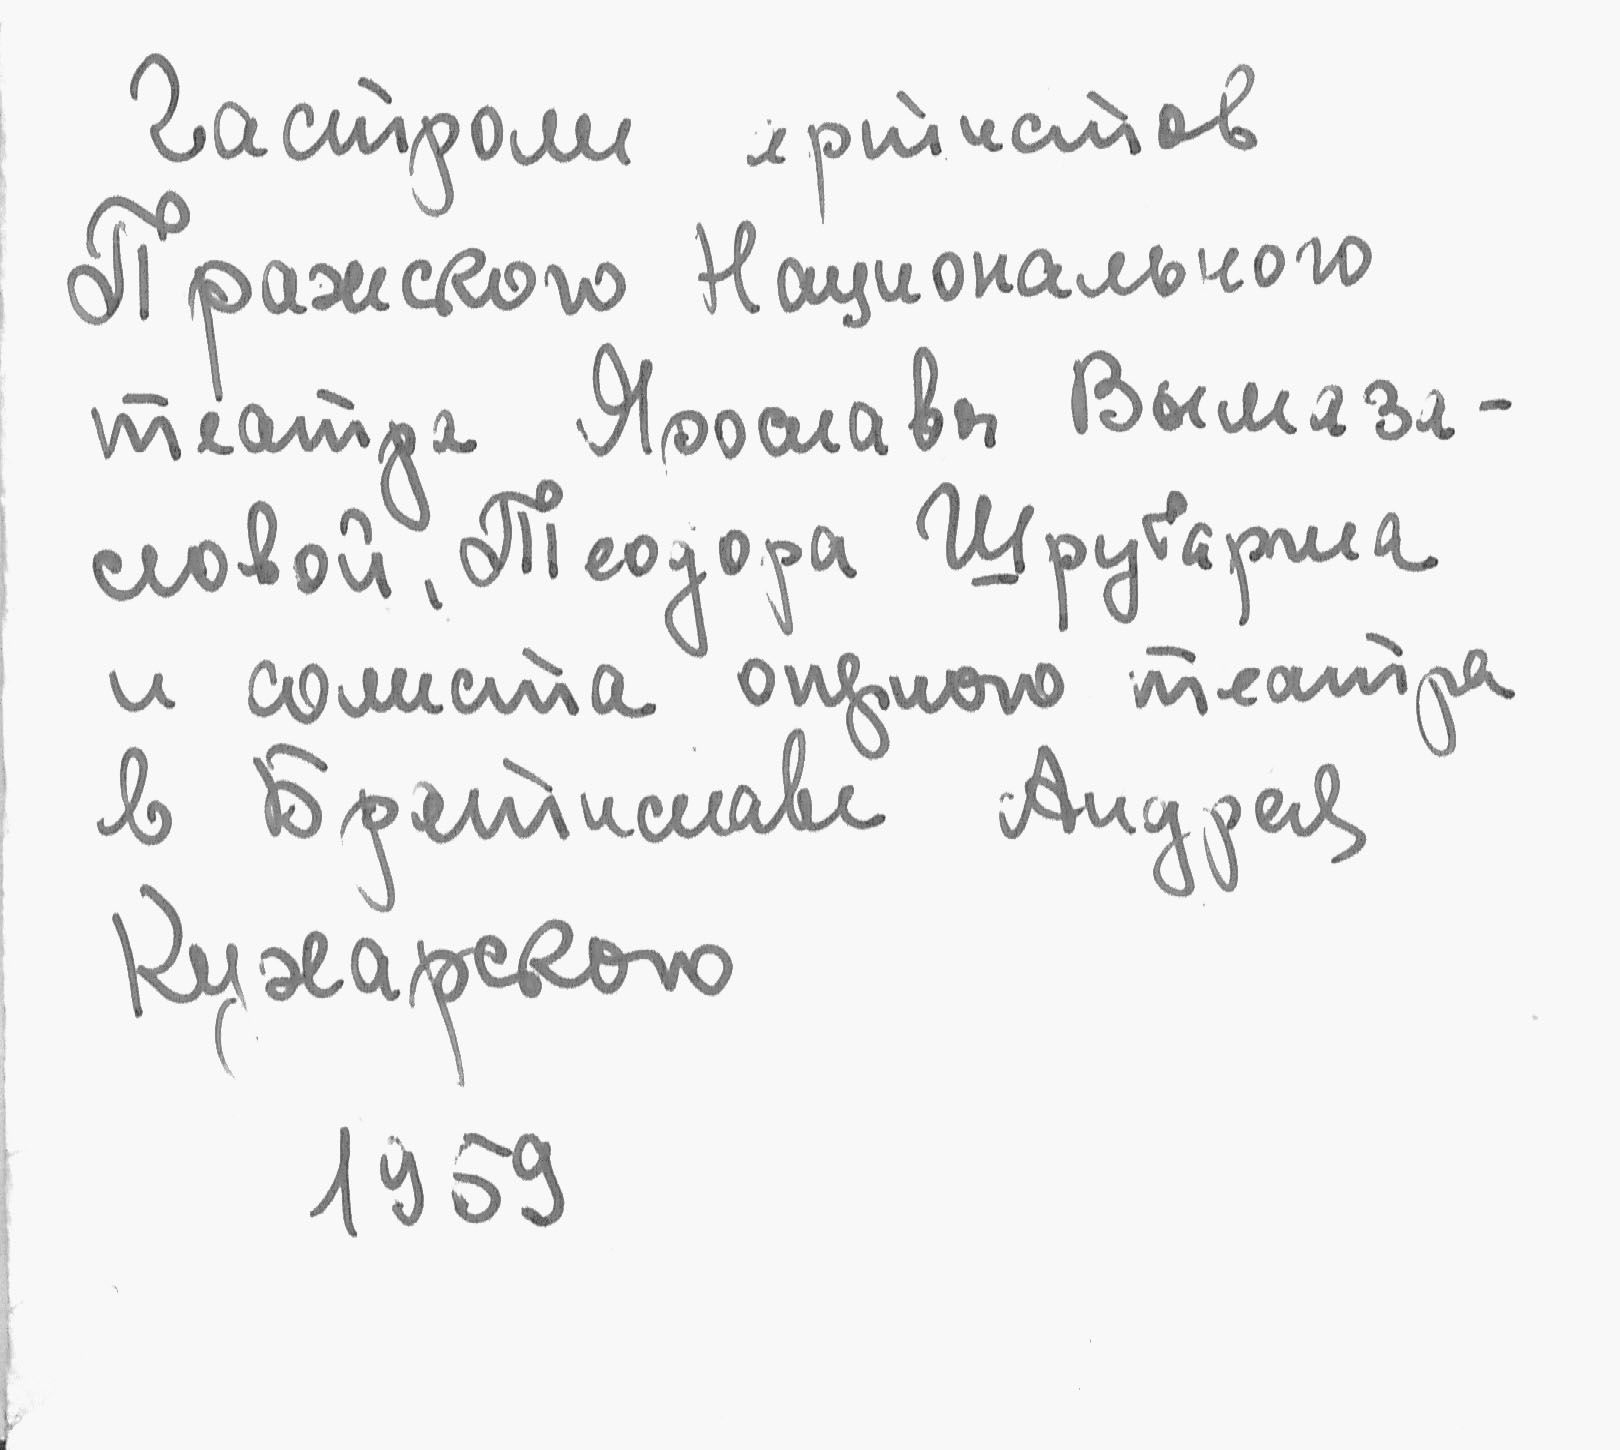 Гастроли артистов
Пражского Национального
театра Ярославы Вымаза-
ловой, Теодора Шрубаржа
и солиста оперного театра
в Братиславе Андрея
Кухарского
1959